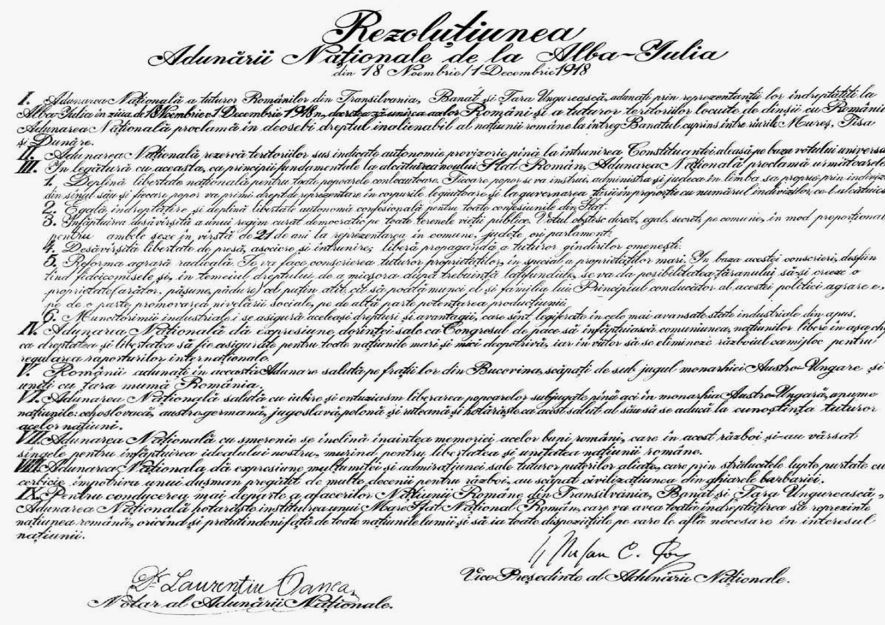 Rezoluțiunea
Adunării Naționale de la Alba-Iulia
din 18 Noembrie/1 Decembrie 1918
I. Adunarea Națională a tuturor Românilor din Transilvania, Banat și Țara Ungurească, adunați prin reprezentanții lor îndreptățiți la
Alba-Iulia în ziua de 18 Noembrie/1 Decembrie 1918, decretează unirea acelor Români și a tuturor teritoriilor locuite de dînșii cu România
Adunarea Națională proclamă îndeosebi dreptul inalienabil al națiunii române la întreg Banatul cuprins între rîurile Mureș, Tisa
și Dunăre.
II. Adunarea Națională rezervă teritoriilor sus indicate autonomie provizorie pînă la întrunirea Constituantei aleasă pe baza votului universal
III. În legătură cu aceasta, ca principii fundamentale la alcătuirea noului Stat Român, Adunarea Națională proclamă următoarele
1. Deplină libertate națională pentru toate popoarele conlocuitoare. Fiecare popor se va instrui, administra și judeca în limba sa proprie prin indivizi
din sînul său și fiecare popor va primi drept de reprezentare în corpurile legiuitoare și la guvernarea țării în proporție cu numărul indivizilor ce-l alcătuiesc
2. Egală îndreptățire și deplină libertate autonomă confesională pentru toate confesiunile din Stat.
3. Înfăptuirea desăvîrșită a unui regim curat democratic pe toate terenele vieții publice. Votul obștesc, direct, egal, secret, pe comune, în mod proporțional
pentru ambele sexe în vîrstă de 21 de ani la reprezentarea în comune, județe ori parlament.
4. Desăvîrșită libertate de presă, asociere și întrunire; liberă propagandă a tuturor gîndirilor omenești.
5. Reforma agrară radicală. Se va face conscrierea tuturor proprietăților, în special a proprietăților mari. În baza acestei conscrieri, desfiin
țînd fideicomisele și, în temeiul dreptului de a micșora după trebuință latifundiile, se va da posibilitatea țăranului să-și creeze o
proprietate (arător, pășune, pădure) cel puțin atît cît să poată munci el și familia lui. Principiul conducător al acestei politici agrare e,
pe de o parte, promovarea nivelării sociale, pe de altă parte potențarea producțiunii.
6. Muncitorimii industriale i se asigură aceleași drepturi și avantagii, care sînt legiferate în cele mai avansate state industriale din apus.
IV. Adunarea Națională dă expresiune dorinței sale ca Congresul de pace să înfăptuiască comuniunea națiunilor libere în așa chip
ca dreptatea și libertatea să fie asigurate pentru toate națiunile mari și mici deopotrivă, iar în viitor să se elimineze războiul ca mijloc pentru
regularea raporturilor internaționale.
V. Românii adunați în această Adunare salută pe frații lor din Bucovina, scăpați de sub jugul monarhiei Austro-Ungare și
uniți cu țara mumă România.
VI. Adunarea Națională salută cu iubire și entuziasm liberarea popoarelor subjugate pînă aci în monarhia Austro-Ungară, anume
națiunile: cehoslovacă, austrogermană, jugoslavă, polonă și ruteană și hotărăște ca acest salut al său să se aducă la cunoștința tuturor
acelor națiuni.
VII. Adunarea Națională cu smerenie se înclină înaintea memoriei acelor bupi români, care în acest război și-au vărsat
sîngele pentru înfăptuirea idealului nostru, murind pentru libertatea și unitatea națiunii române.
VIII. Adunarea Națională dă expresiune mulțumitei și admirațiunei sale tuturor puterilor aliate, care prin strălucitele lupte purtate cu
cerbicie împotriva unui dușman pregătit de multe decenii pentru război, au scăpat civilizațiunea din ghiarele barbariei.
IX. Pentru conducerea mai departe a afacerilor Națiunii Române din Transilvania, Banat și Țara Ungurească,
Adunarea Națională hotărăște instituirea unui Mare Sfat Național Român, care va avea toată îndreptățirea să reprezinte
națiunea română, oricînd și pretutindeni față de toate națiunile lumii și să ia toate dispozițiile pe care le află necesare în interesul
națiunii.
C. Pop
Vice Președinte al Adunării Naționale.
Dr. Laurențiu Oanea
Notar al Adunării Naționale.